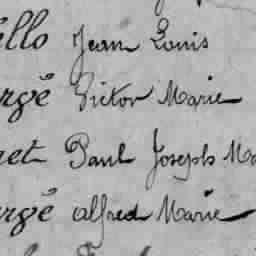 ello Jean Louis
rgé Victor Marie
ret Paul Joseph Ma
ergé Alfred Marie